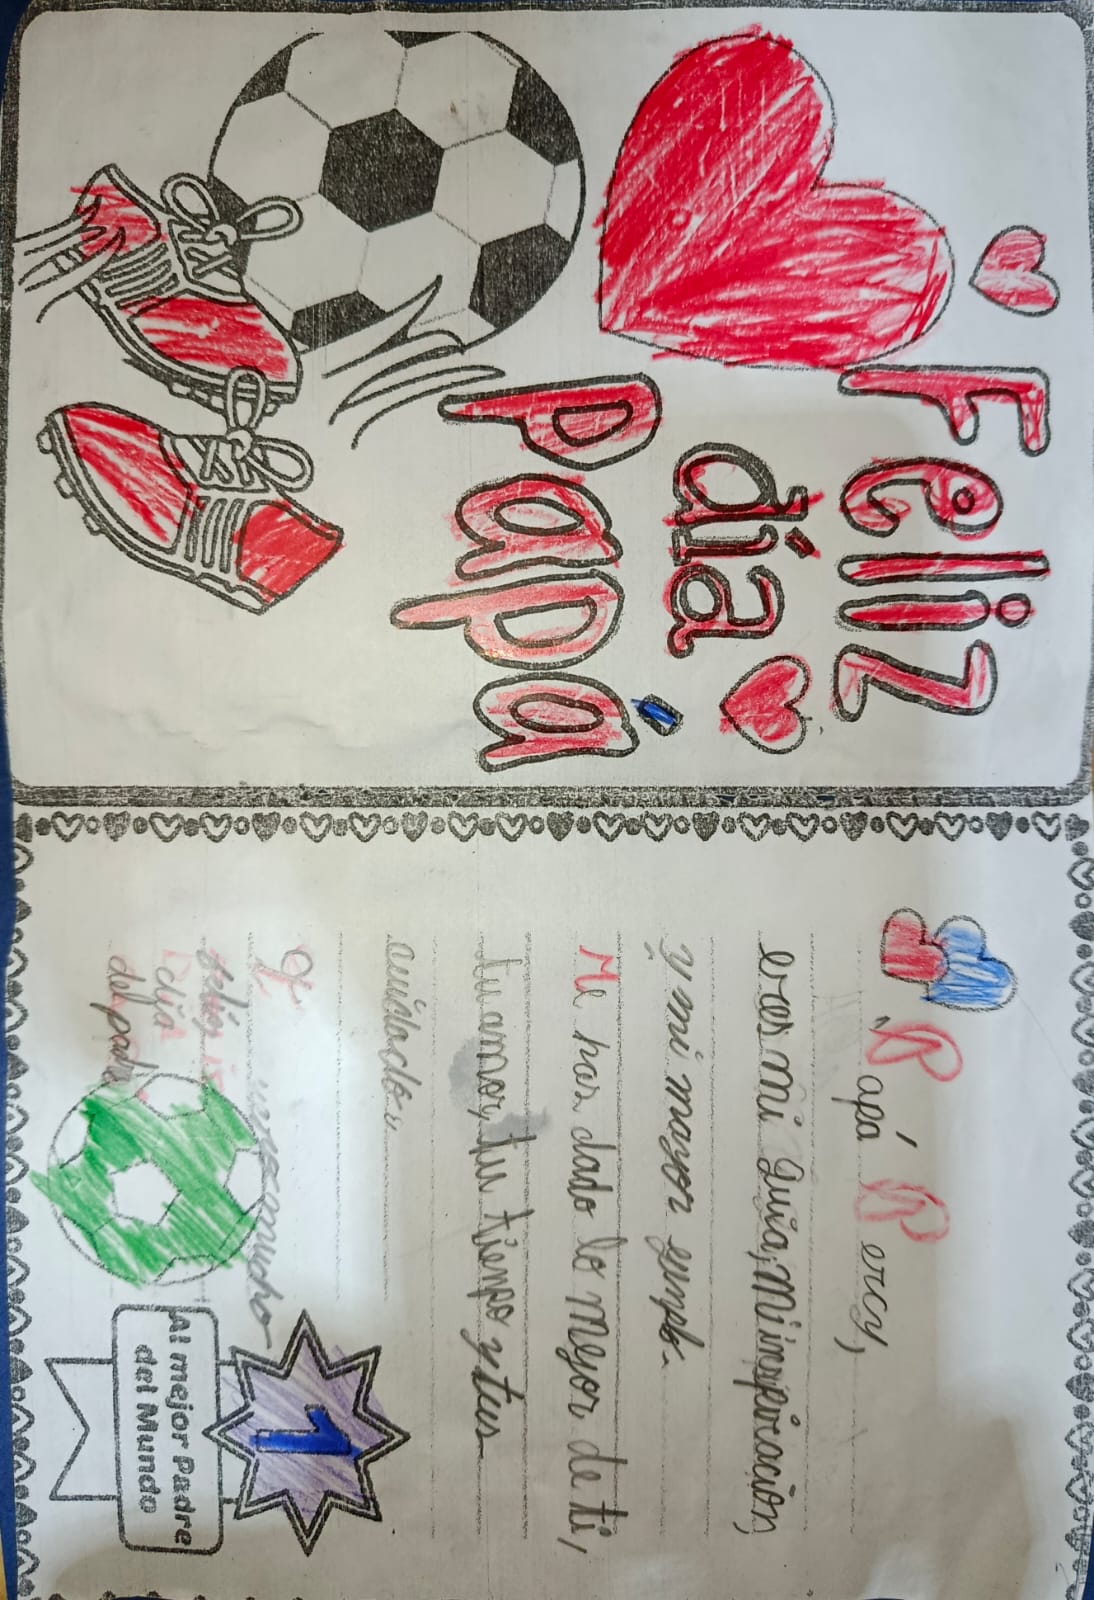 Feliz
día
Papá
Papá Percy,
eres mi guía, mi inspiración,
y mi mayor ejemplo.
Me has dado lo mejor de ti,
tu amor, tu tiempo y tus
cuidado.
mucho
feliz
día
del padre
1
Al mejor Padre
del Mundo